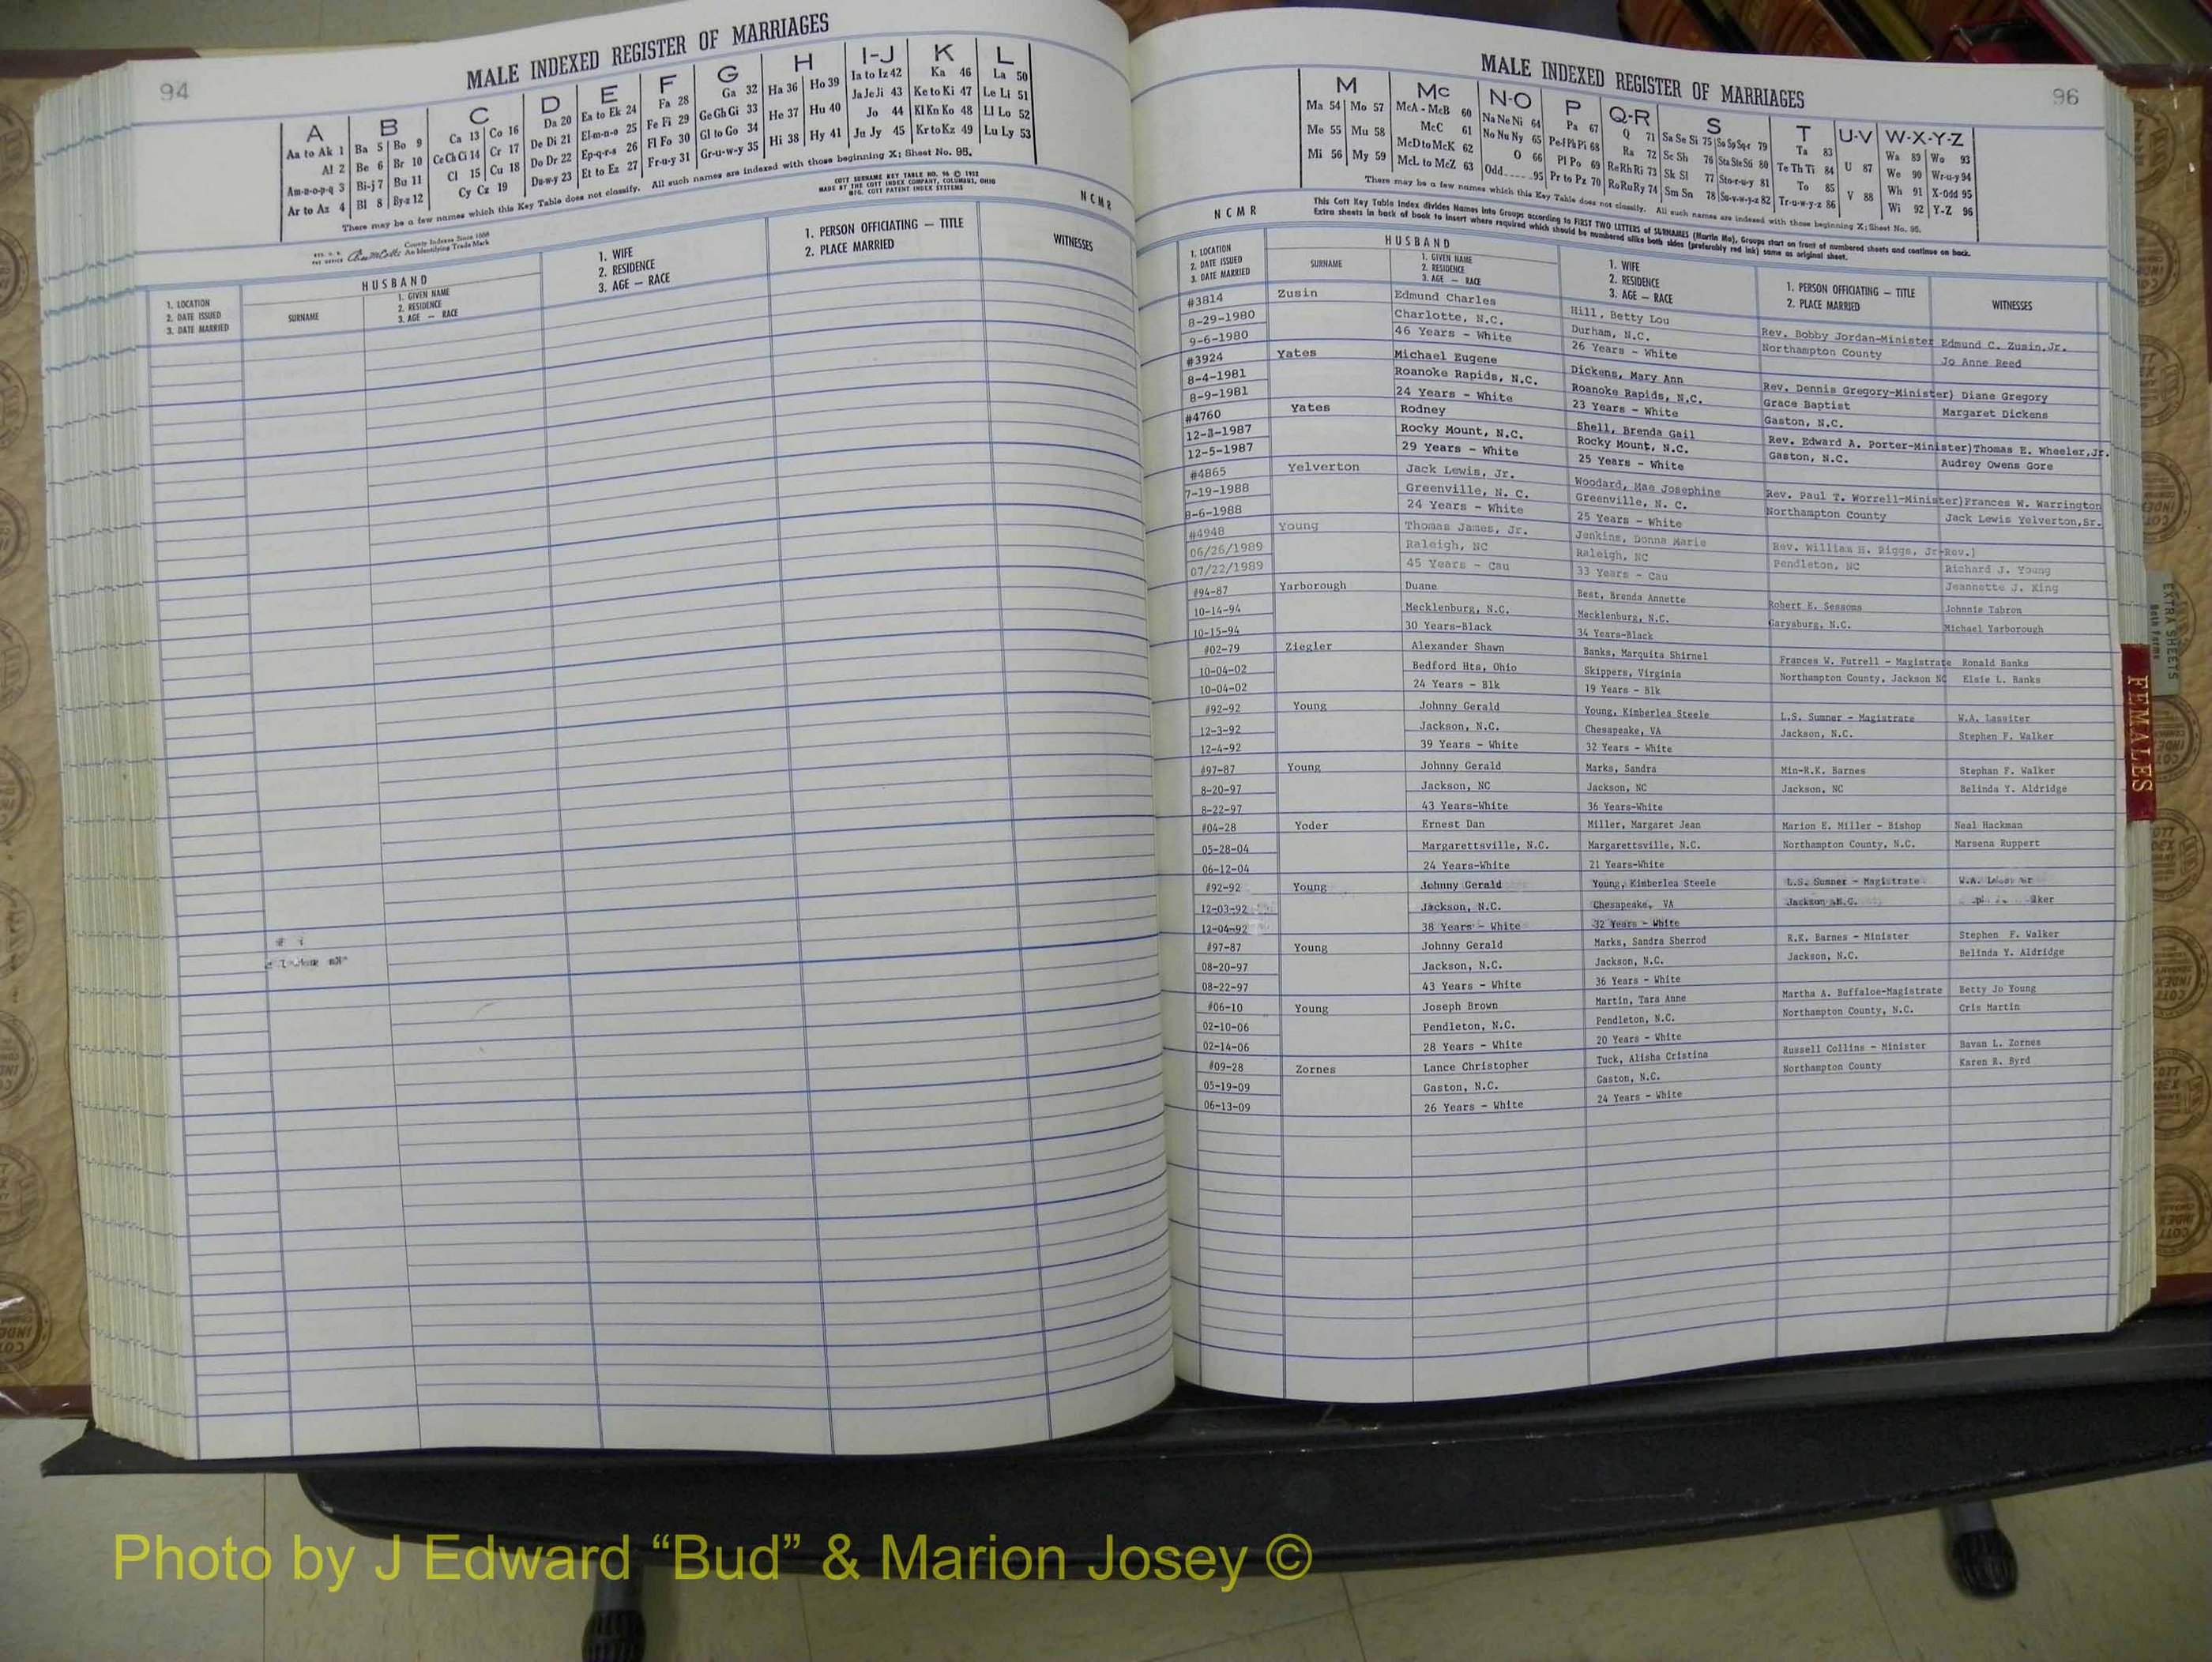 94
MALE INDEXED REGISTER OF MARRIAGES
A B C D E F G H I-J K L
Aa to Ak 1 Ba 5 Bo 9 Ca 13 Co 16 Da 20 Ea to Ek 24 Fa 28 Ga 32 Ha 36 Ho 39 Ia to Iz 42 Ka 46 La 50
Al 2 Be 6 Br 10 Ce Ch Ci 14 Cr 17 De Di 21 El-m-n-o 25 Fe Fi 29 Ge Gh Gi 33 He 37 Hu 40 Ja Je Ji 43 Ke to Ki 47 Le Li 51
Am-n-o-p-q 3 Bi-j 7 Bu 11 Cl 15 Cu 18 Do Dr 22 Ep-q-r-s 26 Fl Fo 30 Gl to Go 34 Hi 38 Hy 41 Jo 44 Kl Kn Ko 48 Ll Lo 52
Ar to Az 4 Bl 8 By-z 12 Cy Cz 19 Du-w-y 23 Et to Ez 27 Fr-u-y 31 Gr-u-w-y 35 Ju Jy 45 Kr to Kz 49 Lu Ly 53
There may be a few names which this Key Table does not classify. All such names are indexed with those beginning X; Sheet No. 95.
County Indexes Since 1888
An Identifying Trade Mark
COTT SURNAME KEY TABLE NO. 96 © 1952
MADE BY THE COTT INDEX COMPANY, COLUMBUS, OHIO
MFG. COTT PATENT INDEX SYSTEMS
N C M R
1. LOCATION
2. DATE ISSUED
3. DATE MARRIED
HUSBAND
SURNAME
1. GIVEN NAME
2. RESIDENCE
3. AGE — RACE
1. WIFE
2. RESIDENCE
3. AGE — RACE
1. PERSON OFFICIATING — TITLE
2. PLACE MARRIED
WITNESSES
MALE INDEXED REGISTER OF MARRIAGES
96
M Mc N-O P Q-R S T U-V W-X-Y-Z
Ma 54 Mo 57 McA - McB 60 Na Ne Ni 64 Pa 67 Q 71 Sa Se Si 75 So Sp Sq-r 79 Ta 83 Wa 89 Wo 93
Me 55 Mu 58 McC 61 No Nu Ny 65 Pe-f Ph Pi 68 Ra 72 Sc Sh 76 Sta Ste Sti 80 Te Th Ti 84 U 87 We 90 Wr-u-y 94
Mi 56 My 59 McD to McK 62 O 66 Pl Po 69 Re Rh Ri 73 Sk Sl 77 Sto-r-u-y 81 To 85 Wh 91 X-Odd 95
McL to McZ 63 Odd 95 Pr to Pz 70 Ro Ru Ry 74 Sm Sn 78 Su-v-w-y-z 82 Tr-u-w-y-z 86 V 88 Wi 92 Y-Z 96
There may be a few names which this Key Table does not classify. All such names are indexed with those beginning X; Sheet No. 95.
This Cott Key Table Index divides Names into Groups according to FIRST TWO LETTERS of SURNAMES (Martin Ma), Groups start on front of numbered sheets and continue on back.
Extra sheets in back of book to insert where required which should be numbered alike both sides (preferably red ink) same as original sheet.
N C M R
1. LOCATION
2. DATE ISSUED
3. DATE MARRIED
HUSBAND
SURNAME
1. GIVEN NAME
2. RESIDENCE
3. AGE — RACE
1. WIFE
2. RESIDENCE
3. AGE — RACE
1. PERSON OFFICIATING — TITLE
2. PLACE MARRIED
WITNESSES
#3814 Zusin Edmund Charles Hill, Betty Lou Rev. Bobby Jordan-Minister Edmund C. Zusin, Jr.
8-29-1980 Charlotte, N.C. Durham, N.C. Northampton County Jo Anne Reed
9-6-1980 46 Years - White 26 Years - White
#3924 Yates Michael Eugene Dickens, Mary Ann Rev. Dennis Gregory-Minister) Diane Gregory
8-4-1981 Roanoke Rapids, N.C. Roanoke Rapids, N.C. Grace Baptist Margaret Dickens
8-9-1981 24 Years - White 23 Years - White Gaston, N.C.
#4760 Yates Rodney Shell, Brenda Gail Rev. Edward A. Porter-Minister)Thomas E. Wheeler,Jr.
12-3-1987 Rocky Mount, N.C. Rocky Mount, N.C. Gaston, N.C. Audrey Owens Gore
12-5-1987 29 Years - White 25 Years - White
#4865 Yelverton Jack Lewis, Jr. Woodard, Mae Josephine Rev. Paul T. Worrell-Minister)Frances W. Warrington
7-19-1988 Greenville, N. C. Greenville, N. C. Northampton County Jack Lewis Yelverton,Sr.
8-6-1988 24 Years - White 25 Years - White
#4948 Young Thomas James, Jr. Jenkins, Donna Marie Rev. William H. Riggs, Jr-Rev.)
06/26/1989 Raleigh, NC Raleigh, NC Pendleton, NC Richard J. Young
07/22/1989 45 Years - Cau 33 Years - Cau Jeannette J. King
#94-87 Yarborough Duane Best, Brenda Annette Robert E. Sessoms Johnnie Tabron
10-14-94 Mecklenburg, N.C. Mecklenburg, N.C. Garysburg, N.C. Michael Yarborough
10-15-94 30 Years-Black 34 Years-Black
#02-79 Ziegler Alexander Shawn Banks, Marquita Shirnel Frances W. Futrell - Magistrate Ronald Banks
10-04-02 Bedford Hts, Ohio Skippers, Virginia Northampton County, Jackson NC Elsie L. Banks
10-04-02 24 Years - Blk 19 Years - Blk
#92-92 Young Johnny Gerald Young, Kimberlea Steele L.S. Sumner - Magistrate W.A. Lassiter
12-3-92 Jackson, N.C. Chesapeake, VA Jackson, N.C. Stephen F. Walker
12-4-92 39 Years - White 32 Years - White
#97-87 Young Johnny Gerald Marks, Sandra Min-R.K. Barnes Stephan F. Walker
8-20-97 Jackson, NC Jackson, NC Jackson, NC Belinda Y. Aldridge
8-22-97 43 Years-White 36 Years-White
#04-28 Yoder Ernest Dan Miller, Margaret Jean Marion E. Miller - Bishop Neal Hackman
05-28-04 Margarettsville, N.C. Margarettsville, N.C. Northampton County, N.C. Marsena Ruppert
06-12-04 24 Years-White 21 Years-White
#92-92 Young Johnny Gerald Young, Kimberlea Steele L.S. Sumner - Magistrate W.A.
12-03-92 Jackson, N.C. Chesapeake, VA Jackson N.C.
12-04-92 38 Years - White 32 Years - White
#97-87 Young Johnny Gerald Marks, Sandra Sherrod R.K. Barnes - Minister Stephen F. Walker
08-20-97 Jackson, N.C. Jackson, N.C. Jackson, N.C. Belinda Y. Aldridge
08-22-97 43 Years - White 36 Years - White
#06-10 Young Joseph Brown Martin, Tara Anne Martha A. Buffaloe-Magistrate Betty Jo Young
02-10-06 Pendleton, N.C. Pendleton, N.C. Northampton County, N.C. Cris Martin
02-14-06 28 Years - White 20 Years - White
#09-28 Zornes Lance Christopher Tuck, Alisha Cristina Russell Collins - Minister Bavan L. Zornes
05-19-09 Gaston, N.C. Gaston, N.C. Northampton County Karen R. Byrd
06-13-09 26 Years - White 24 Years - White
EXTRA SHEETS
FEMALES
Photo by J Edward “Bud” & Marion Josey ©